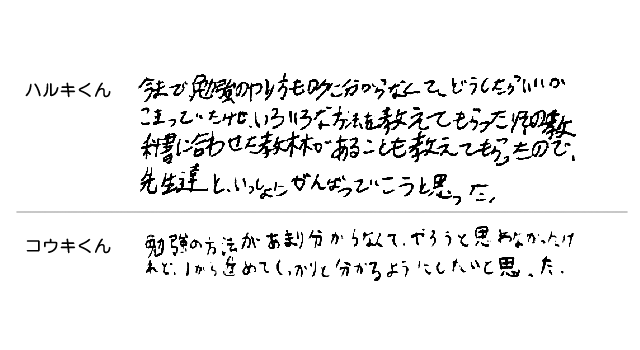 ハルキくん
今まで勉強のやり方もロクに分からなくて、どうしたらいいか
こまっていたけど、いろいろな方法を教えてもらったりその教
科書に合わせた教材があることも教えてもらったので、
先生達と、いっしょにがんばっていこうと思った。
コウキくん
勉強の方法があまり分からなくて、やろうと思わなかったけ
れど、1から進めてしっかりと分かるようにしたいと思った。